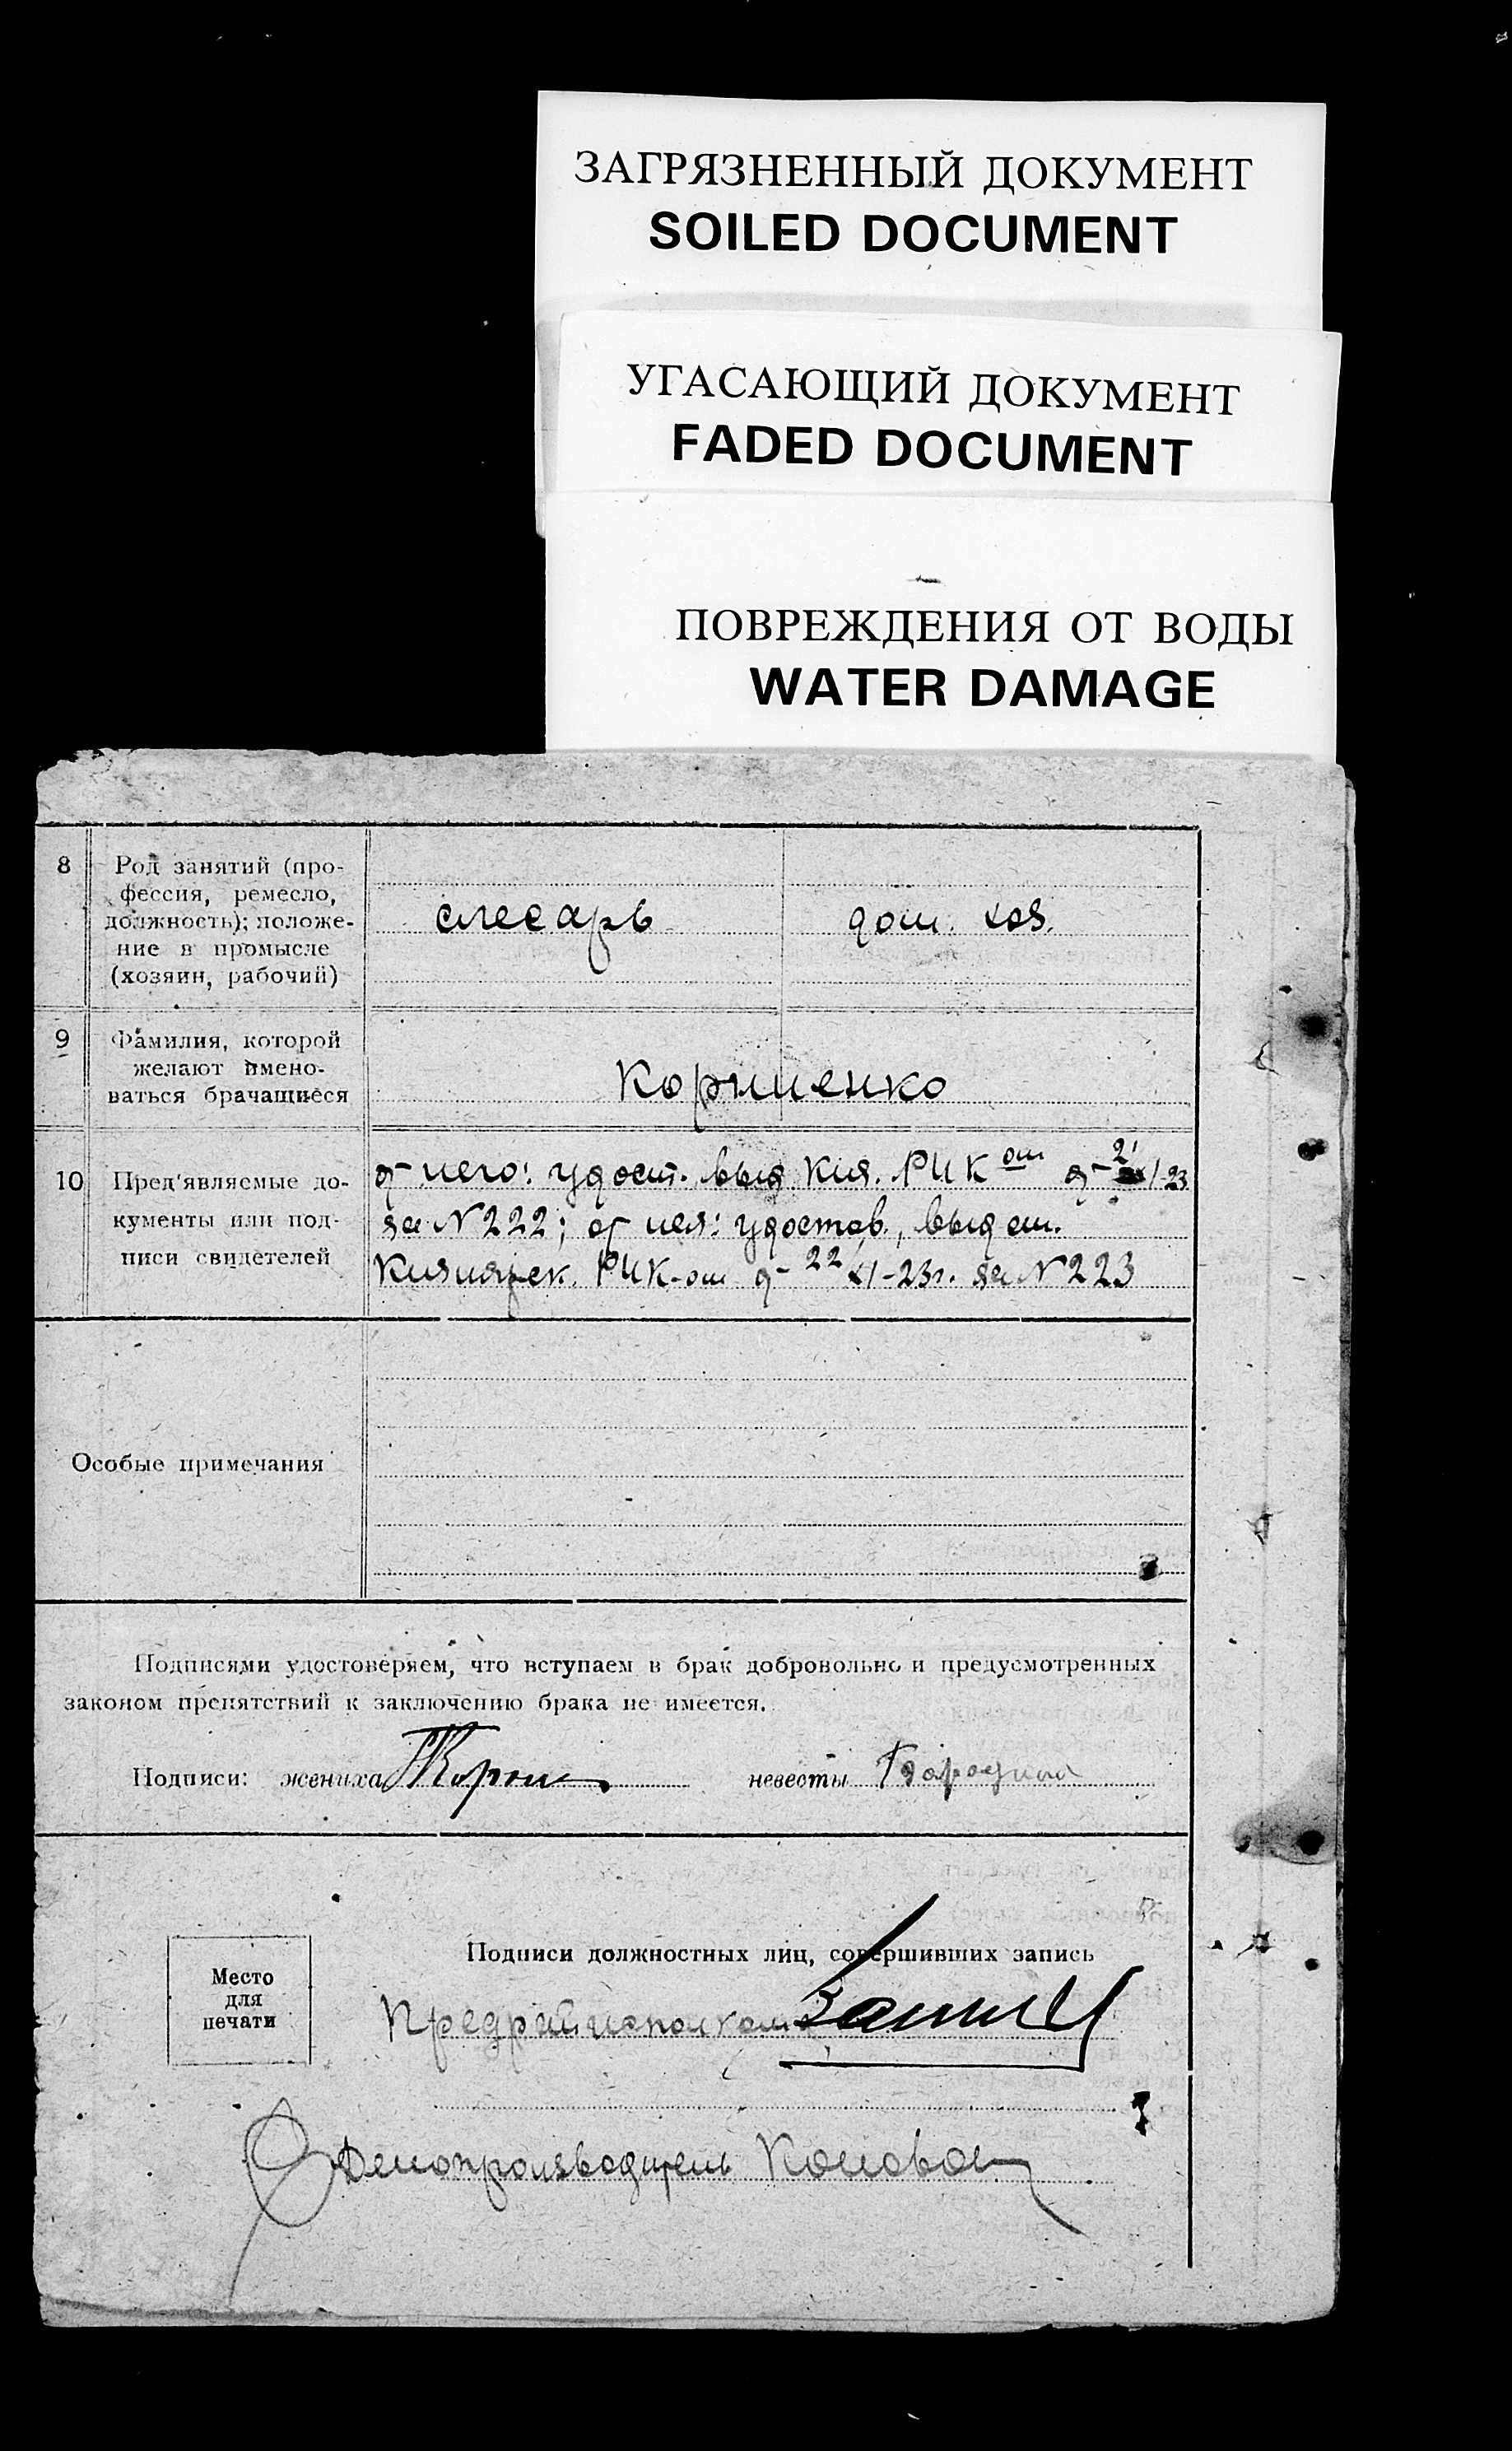 ЗАГРЯЗНЕННЫЙ ДОКУМЕНТ
SOILED DOCUMENT
УГАСАЮЩИЙ ДОКУМЕНТ
FADED DOCUMENT
ПОВРЕЖДЕНИЯ ОТ ВОДЫ
WATER DAMAGE
8 Род занятий (про-
фессия, ремесло,
должность); положе-
ние в промысле
(хозяин, рабочий)
слесарь дом. хоз.
9 Фамилия, которой
желают имено-
ваться брачащиеся
Корниенко
10 Пред'являемые до-
кументы или под-
писи свидетелей
от него: удост. выд. Киз. РИК ом от 21/XI-23
за № 222; от нея: удостов., выд. ем.
Кизлярск. РИК-ом от 22/XI-23г. за № 223
Особые примечания
Подписями удостоверяем, что вступаем в брак добровольно и предусмотренных
законом препятствий к заключению брака не имеется.
Подписи: жениха невесты
Место
для
печати
Подписи должностных лиц, совершивших запись
Предрайисполкома
Делопроизводитель